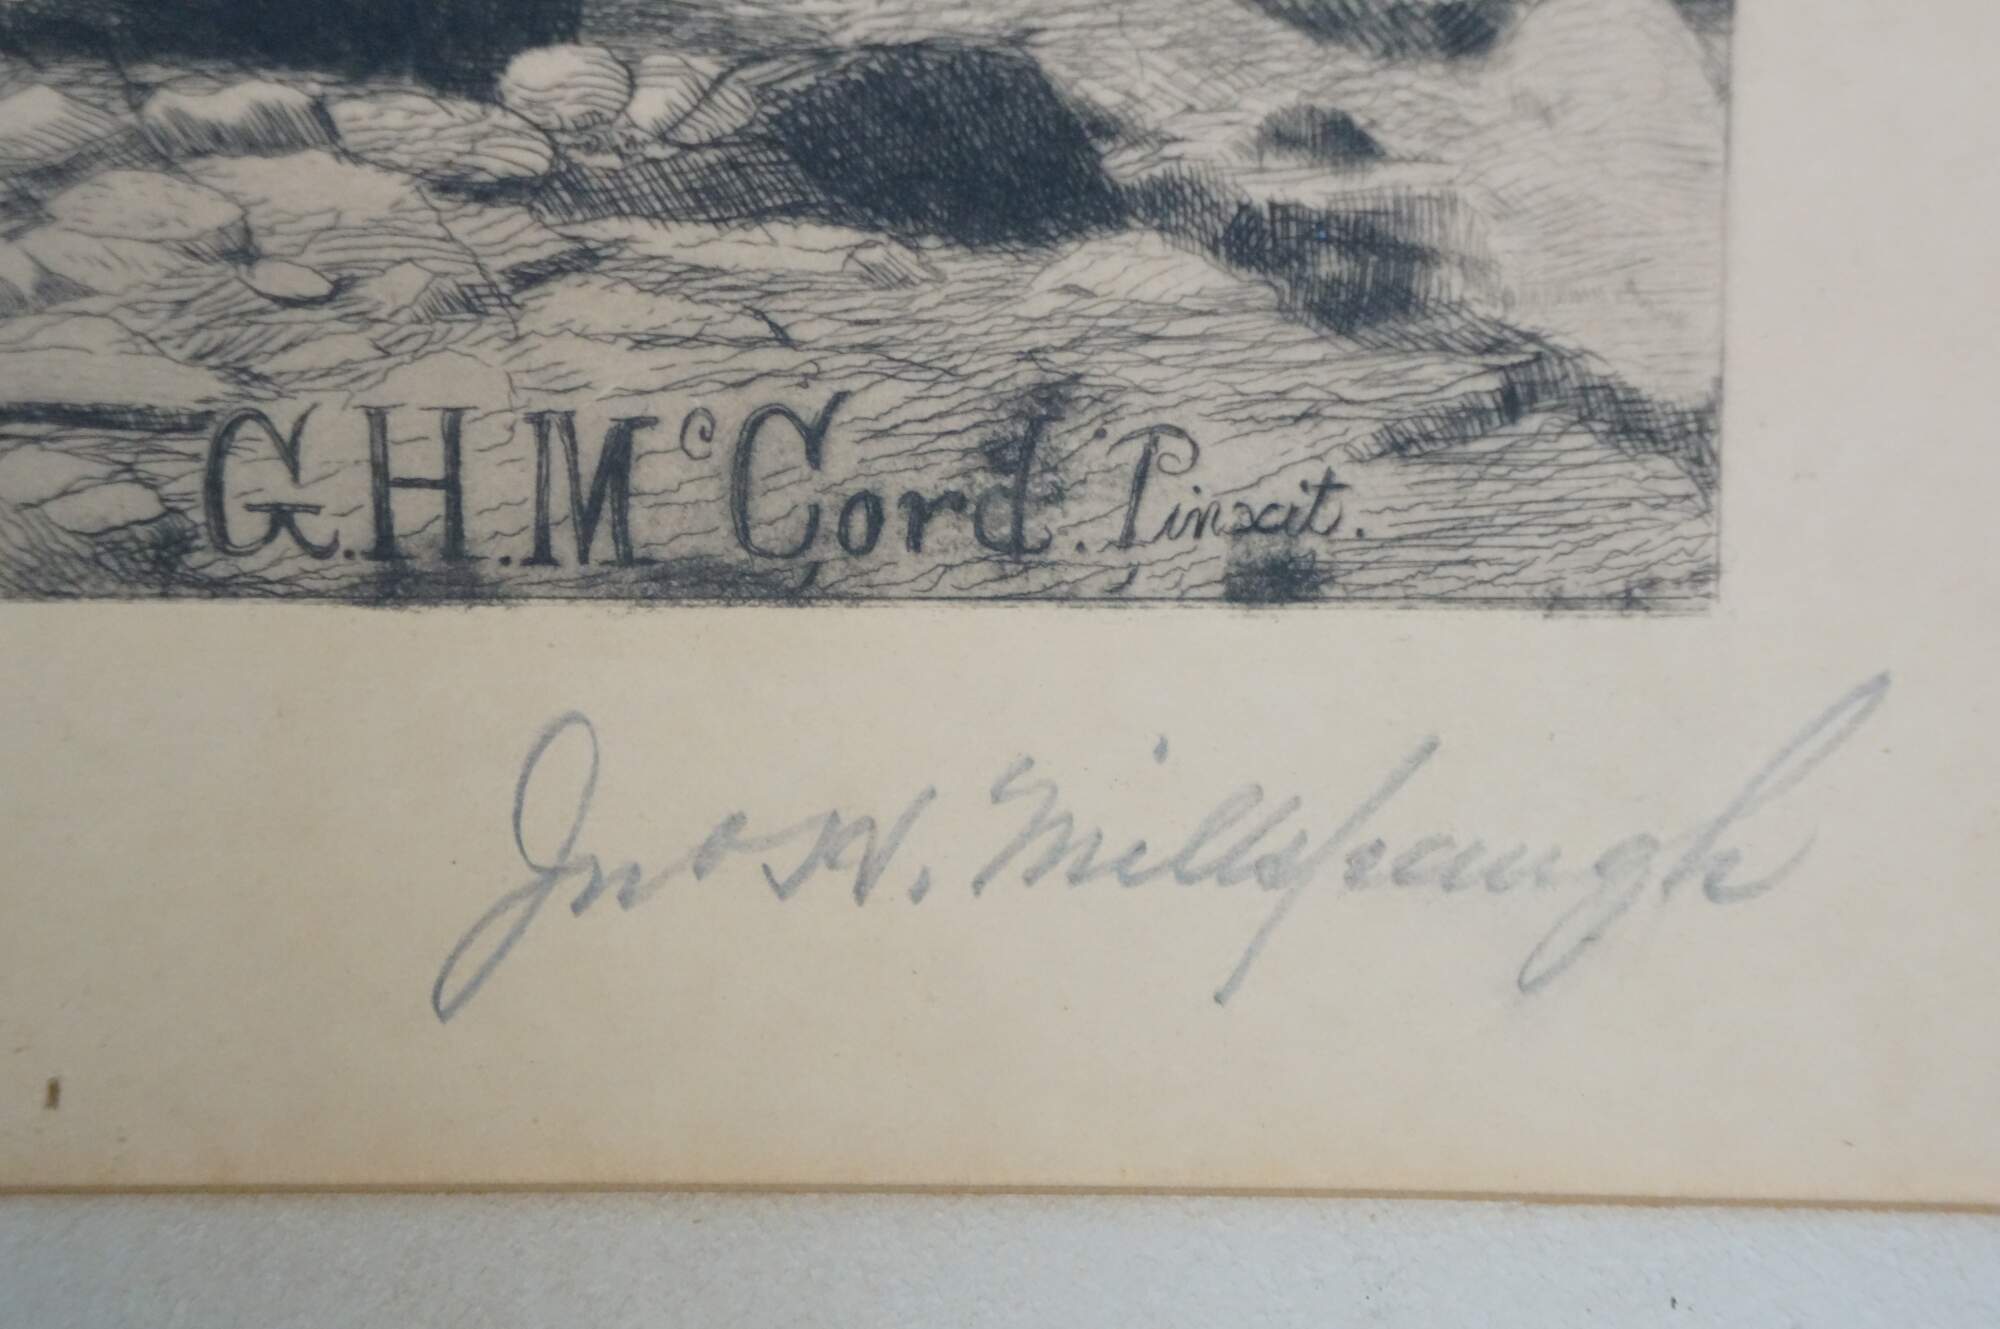 G.H.McCord. Pinxit.
Jno W. Millspaugh